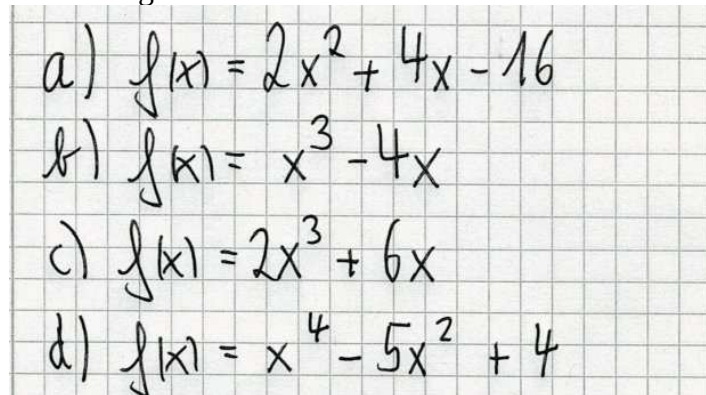 a) f(x) = 2x² + 4x - 16
b) f(x) = x³ - 4x
c) f(x) = 2x³ + 6x
d) f(x) = x⁴ - 5x² + 4